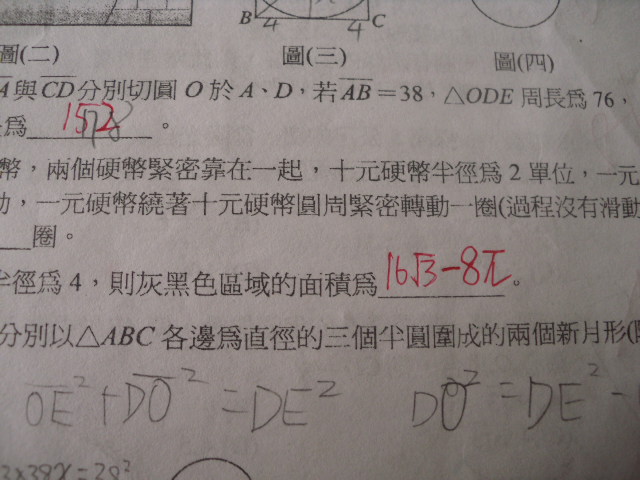 B 4 4 C
圖(二) 圖(三) 圖(四)
A與CD分別切圓 O 於 A、D，若AB＝38，△ODE 周長為 76，
為 152 。
幣，兩個硬幣緊密靠在一起，十元硬幣半徑為 2 單位，一元
，一元硬幣繞著十元硬幣圓周緊密轉動一圈(過程沒有滑動
圈。
半徑為 4，則灰黑色區域的面積為 16√3-8π 。
分別以△ABC 各邊為直徑的三個半圓圍成的兩個新月形(
OE² + DO² = DE² DO² = DE² -